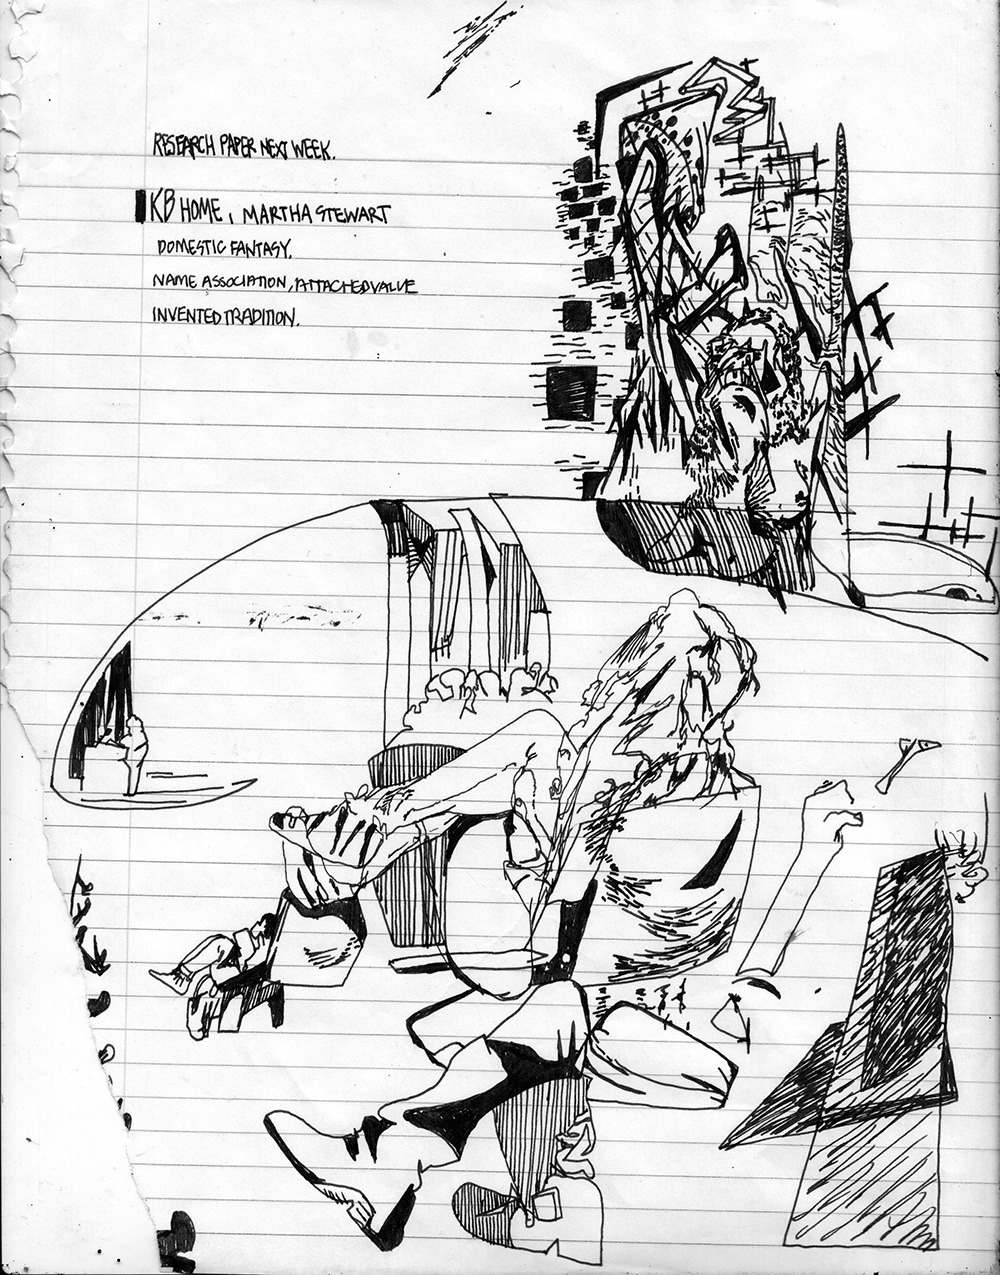 RESEARCH PAPER NEXT WEEK.
KB HOME, MARTHA STEWART
DOMESTIC FANTASY.
NAME ASSOCIATION, ATTACHED VALUE
INVENTED TRADITION.